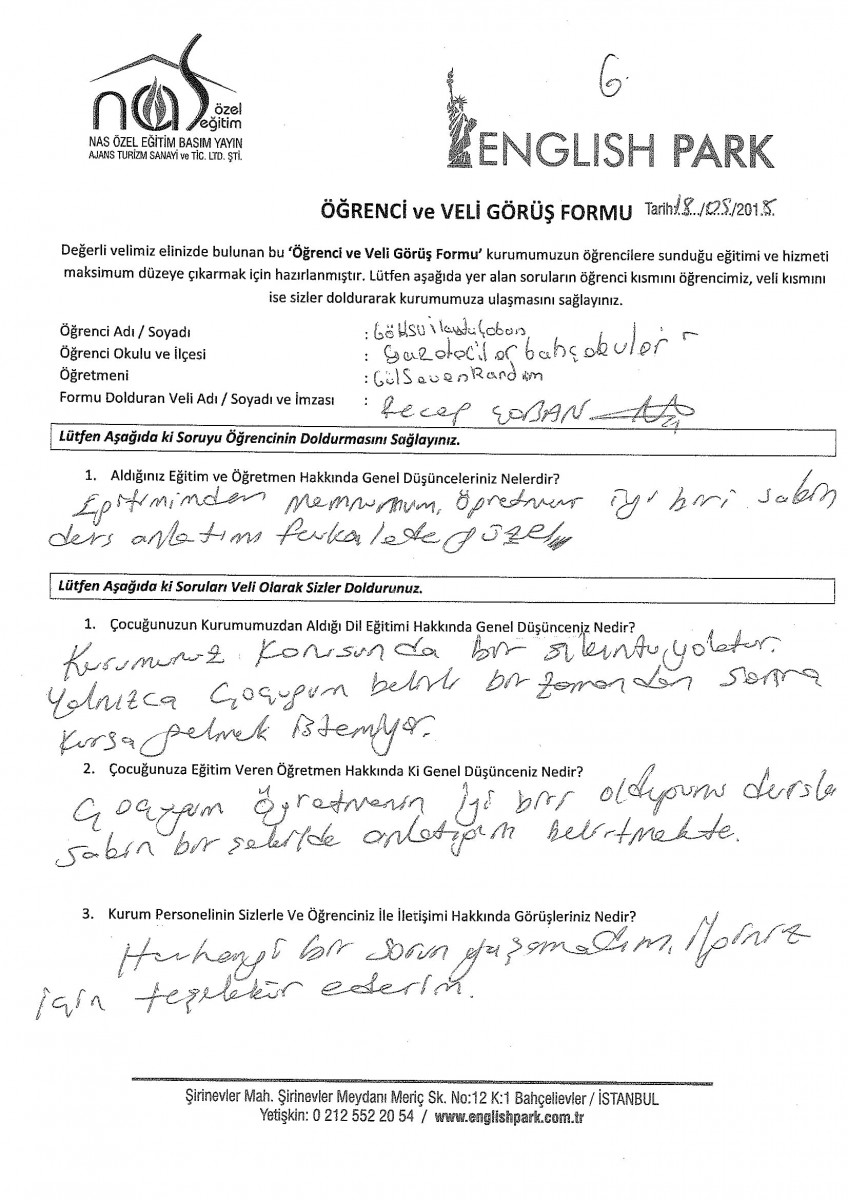 6.
nas özel eğitim
NAS ÖZEL EĞİTİM BASIM YAYIN
AJANS TURİZM SANAYİ ve TİC. LTD. ŞTİ.
ENGLISH PARK
ÖĞRENCİ ve VELİ GÖRÜŞ FORMU Tarih:18./05./2018.
Değerli velimiz elinizde bulunan bu 'Öğrenci ve Veli Görüş Formu' kurumumuzun öğrencilere sunduğu eğitimi ve hizmeti
maksimum düzeye çıkarmak için hazırlanmıştır. Lütfen aşağıda yer alan soruların öğrenci kısmını öğrencimiz, veli kısmını
ise sizler doldurarak kurumumuza ulaşmasını sağlayınız.
Öğrenci Adı / Soyadı :
Öğrenci Okulu ve İlçesi :
Öğretmeni :
Formu Dolduran Veli Adı / Soyadı ve İmzası : Recep ÇOBAN
Lütfen Aşağıda ki Soruyu Öğrencinin Doldurmasını Sağlayınız.
1. Aldığınız Eğitim ve Öğretmen Hakkında Genel Düşünceleriniz Nelerdir?
Eğitiminden memnunum, öğretmen iyi biri sabırlı
ders anlatımı fevkalade güzel
Lütfen Aşağıda ki Soruları Veli Olarak Sizler Doldurunuz.
1. Çocuğunuzun Kurumumuzdan Aldığı Dil Eğitimi Hakkında Genel Düşünceniz Nedir?
Kurumunuz konusunda bir sıkıntı yoktur.
Yalnızca çocuğum belirli bir zamandan sonra
kursa gelmek istemiyor.
2. Çocuğunuza Eğitim Veren Öğretmen Hakkında Ki Genel Düşünceniz Nedir?
Çocuğum öğretmenin iyi biri olduğunu
bir şekilde anlatığını belirtmekte.
3. Kurum Personelinin Sizlerle Ve Öğrenciniz İle İletişimi Hakkında Görüşleriniz Nedir?
Herhangi bir sorun yaşamadım. İlginiz
için teşekkür ederim.
Şirinevler Mah. Şirinevler Meydanı Meriç Sk. No:12 K:1 Bahçelievler / İSTANBUL
Yetişkin: 0 212 552 20 54 / www.englishpark.com.tr